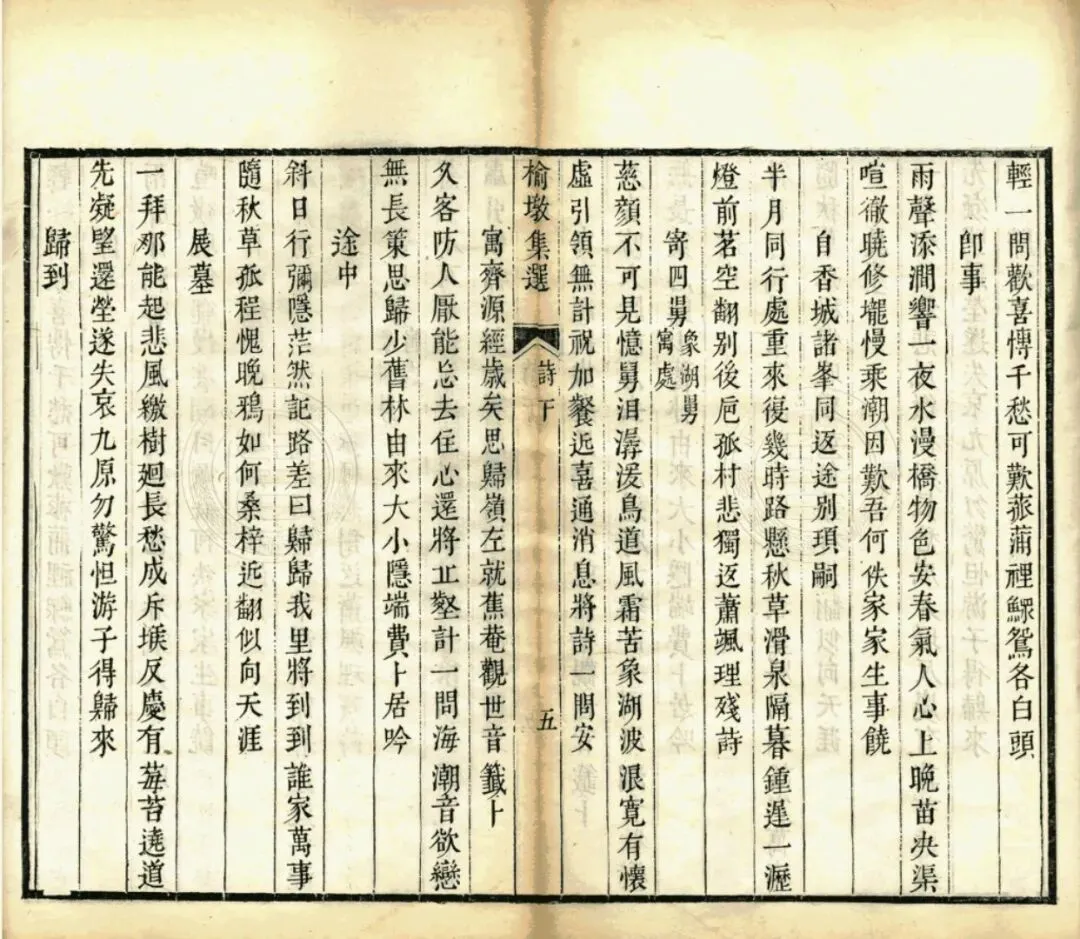 輕一問歡喜慱千愁可歎菰蒲裡鰥鴛各白頭
卽事
雨聲添澗響一夜水漫橋物色安春氣人心上晚苗决渠
喧徹曉修壠慢乘潮因歎吾何佚家家生事饒
自香城諸峯同返途别頊嗣
半月同行處重來復幾時路懸秋草滑泉隔暮鍾遲一瀝
燈前茗空翻别後卮孤村悲獨返蕭颯理殘詩
寄四舅象湖舅寓處
慈顏不可見憶舅泪潺湲鳥道風霜苦象湖波浪寛有懷
虛引領無計祝加餐近喜通消息將詩一問安
榆墩集選 詩下 五
寓齊源經歲矣思歸嶺左就蕉菴觀世音籤卜
久客防人厭能忘去住心還將丘壑計一問海潮音欲戀
無長策思歸少舊林由來大小隱端費卜居吟
途中
斜日行彌隱茫然記路差曰歸歸我里將到到誰家萬事
隨秋草孤程愧晚鴉如何桑梓近翻似向天涯
展墓
一拜那能起悲風繳樹廻長愁成斥堠反慶有莓苔遶道
先凝望還塋遂失哀九原勿驚怛游子得歸來
歸到